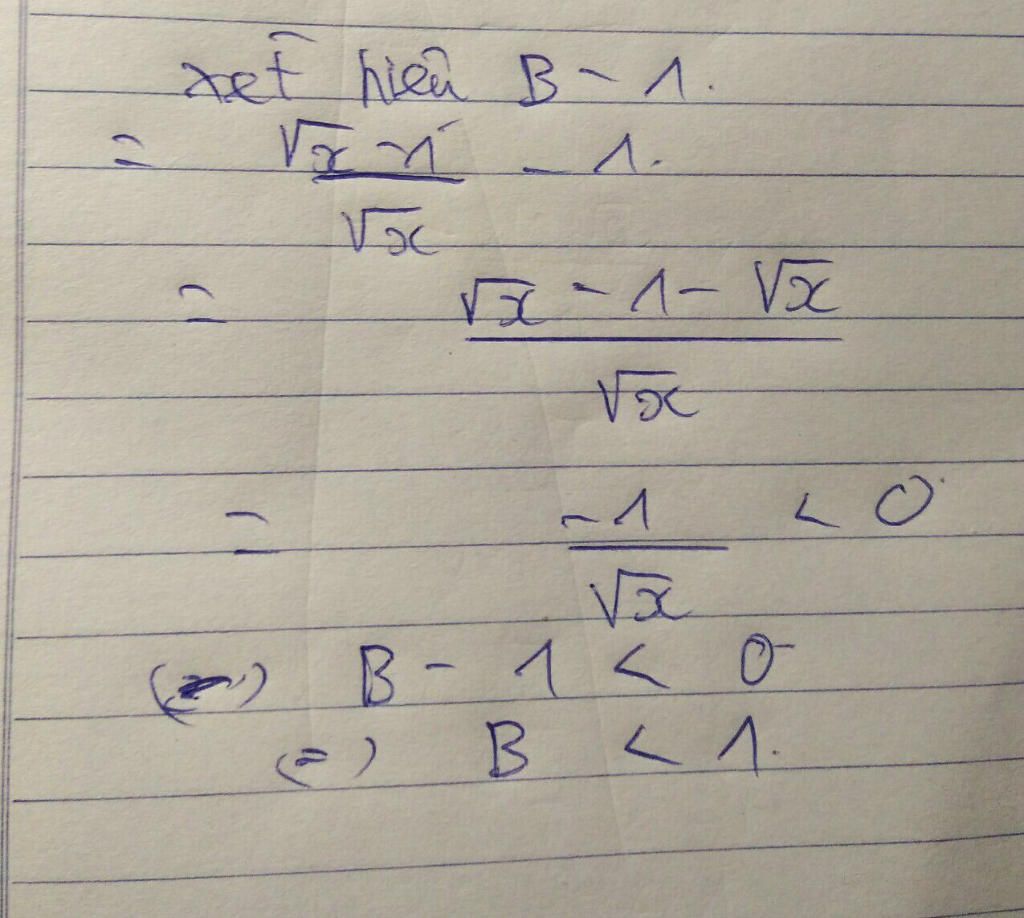 xét hiệu B - 1.
= \frac{\sqrt{x} - 1}{\sqrt{x}} - 1.
= \frac{\sqrt{x} - 1 - \sqrt{x}}{\sqrt{x}}
= \frac{-1}{\sqrt{x}} < 0
(=) B - 1 < 0
(=) B < 1.